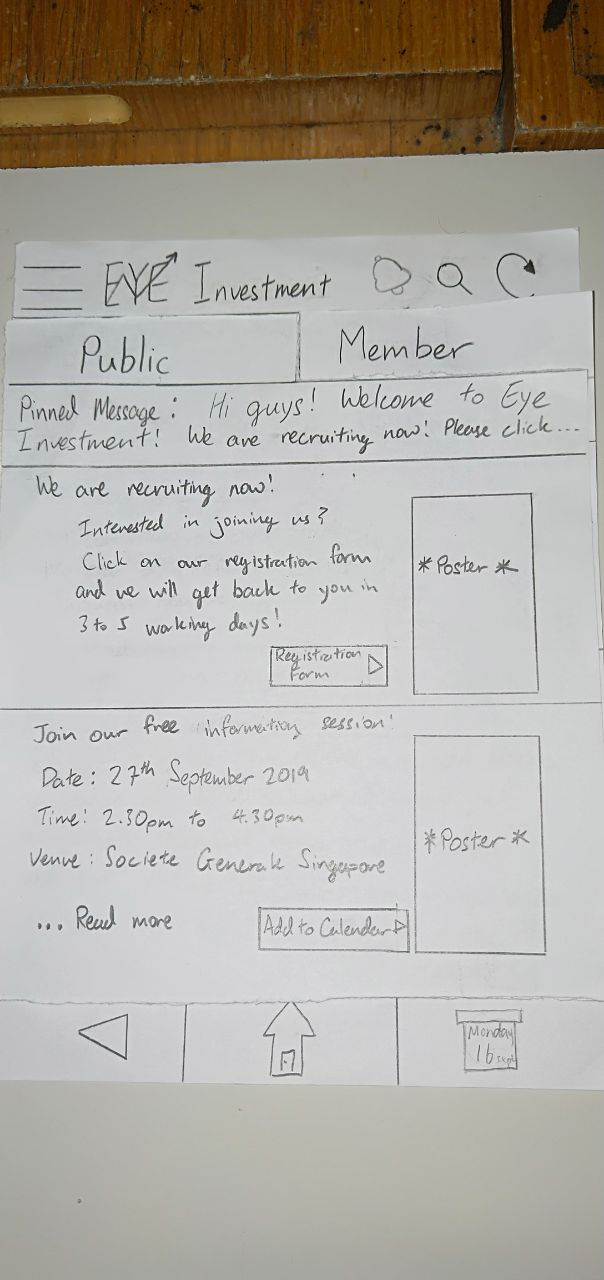 EYE Investment
Public
Member
Pinned Message: Hi guys! Welcome to Eye
Investment! We are recruiting now! Please click...
We are recruiting now!
Interested in joining us?
Click on our registration form
and we will get back to you in
3 to 5 working days!
Registration
Form
*Poster*
Join our free information session!
Date: 27th September 2019
Time: 2.30pm to 4.30pm
Venue: Societe Generale Singapore
... Read more
Add to Calendar
*Poster*
Monday
16 Sept